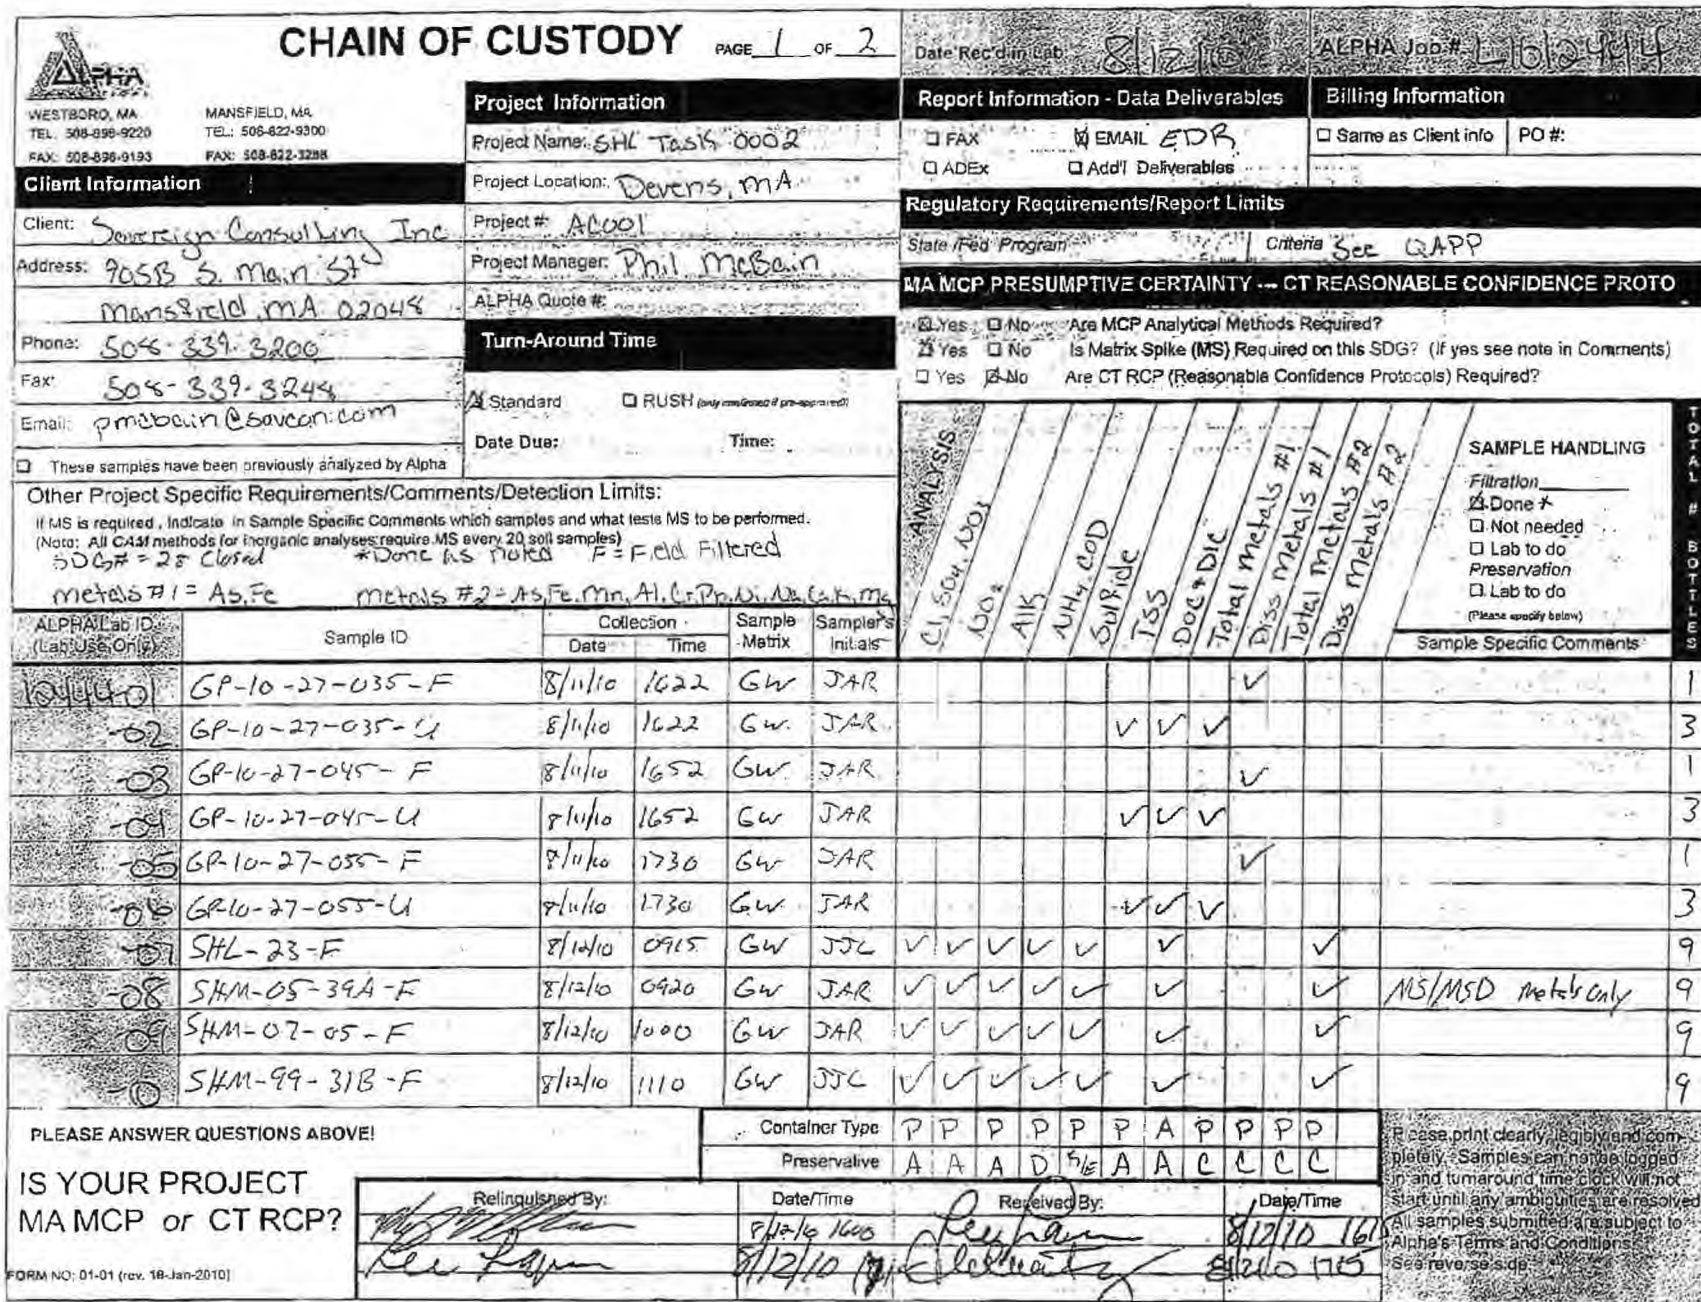 CHAIN OF CUSTODY PAGE 1 OF 2
Date Rec'd in Lab 8/12/10
ALPHA Job #: L1012444
ALPHA
WESTBORO, MA
TEL: 508-898-9220
FAX: 508-898-9193
MANSFIELD, MA
TEL: 508-822-9300
FAX: 508-822-3288
Client Information
Client: Sovereign Consulting Inc
Address: 905B S. Main St
Mansfield, MA 02048
Phone: 508-339-3200
Fax: 508-339-3248
Email: pmcbain@sovcon.com
These samples have been previously analyzed by Alpha
Project Information
Project Name: SHL Task 0002
Project Location: Devens, MA
Project #: AC001
Project Manager: Phil McBain
ALPHA Quote #:
Turn-Around Time
Standard RUSH (only confirmed if pre-approved!)
Date Due: Time:
Report Information - Data Deliverables
FAX EMAIL EDR
ADEx Add'l Deliverables
Billing Information
Same as Client info PO #:
Regulatory Requirements/Report Limits
State/Fed Program Criteria See QAPP
MA MCP PRESUMPTIVE CERTAINTY --- CT REASONABLE CONFIDENCE PROTO
Yes No Are MCP Analytical Methods Required?
Yes No Is Matrix Spike (MS) Required on this SDG? (If yes see note in Comments)
Yes No Are CT RCP (Reasonable Confidence Protocols) Required?
Other Project Specific Requirements/Comments/Detection Limits:
If MS is required, indicate in Sample Specific Comments which samples and what tests MS to be performed.
(Note: All CAM methods for inorganic analyses require MS every 20 soil samples)
SDG# = 28 Closed *Done as noted F = Field Filtered
metals #1 = As, Fe metals #2 = As, Fe, Mn, Al, Cr, Pb, Ni, Na, Ca, K, Mg
ANALYSIS
Cl, SO4, NO3
NO2
Alk
NH4, COD
Sulfide
TSS
DOC + DIC
Total Metals #1
Diss Metals #1
Total Metals #2
Diss Metals #2
SAMPLE HANDLING
Filtration
Done *
Not needed
Lab to do
Preservation
Lab to do
(Please specify below)
TOTAL # BOTTLES
ALPHA Lab ID (Lab Use Only) Sample ID Collection Date Time Sample Matrix Sampler's Initials Sample Specific Comments
12444-01 GP-10-27-035-F 8/11/10 1622 GW JAR ✓ 1
-02 GP-10-27-035-U 8/11/10 1622 GW JAR ✓ ✓ ✓ 3
-03 GP-10-27-045-F 8/11/10 1652 GW JAR ✓ 1
-04 GP-10-27-045-U 8/11/10 1652 GW JAR ✓ ✓ ✓ 3
-05 GP-10-27-055-F 8/11/10 1730 GW JAR ✓ 1
-06 GP-10-27-055-U 8/11/10 1730 GW JAR ✓ ✓ ✓ 3
-07 SHL-23-F 8/12/10 0915 GW JJC ✓ ✓ ✓ ✓ ✓ ✓ ✓ 9
-08 SHM-05-39A-F 8/12/10 0920 GW JAR ✓ ✓ ✓ ✓ ✓ ✓ ✓ MS/MSD Metals Only 9
-09 SHM-07-05-F 8/12/10 1000 GW JAR ✓ ✓ ✓ ✓ ✓ ✓ ✓ 9
-10 SHM-99-31B-F 8/12/10 1110 GW JJC ✓ ✓ ✓ ✓ ✓ ✓ ✓ 9
PLEASE ANSWER QUESTIONS ABOVE!
Container Type P P P P P P A P P P P
Preservative A A A D S/E A A C C C C
IS YOUR PROJECT
MA MCP or CT RCP?
Relinquished By: Date/Time Received By: Date/Time
8/12/10 1600 8/12/10
8/12/10 1715
FORM NO: 01-01 (rev. 18-Jan-2010)
Please print clearly, legibly and completely. Samples can not be logged
in and turnaround time clock will not
start until any ambiguities are resolved.
All samples submitted are subject to
Alpha's Terms and Conditions.
See reverse side.